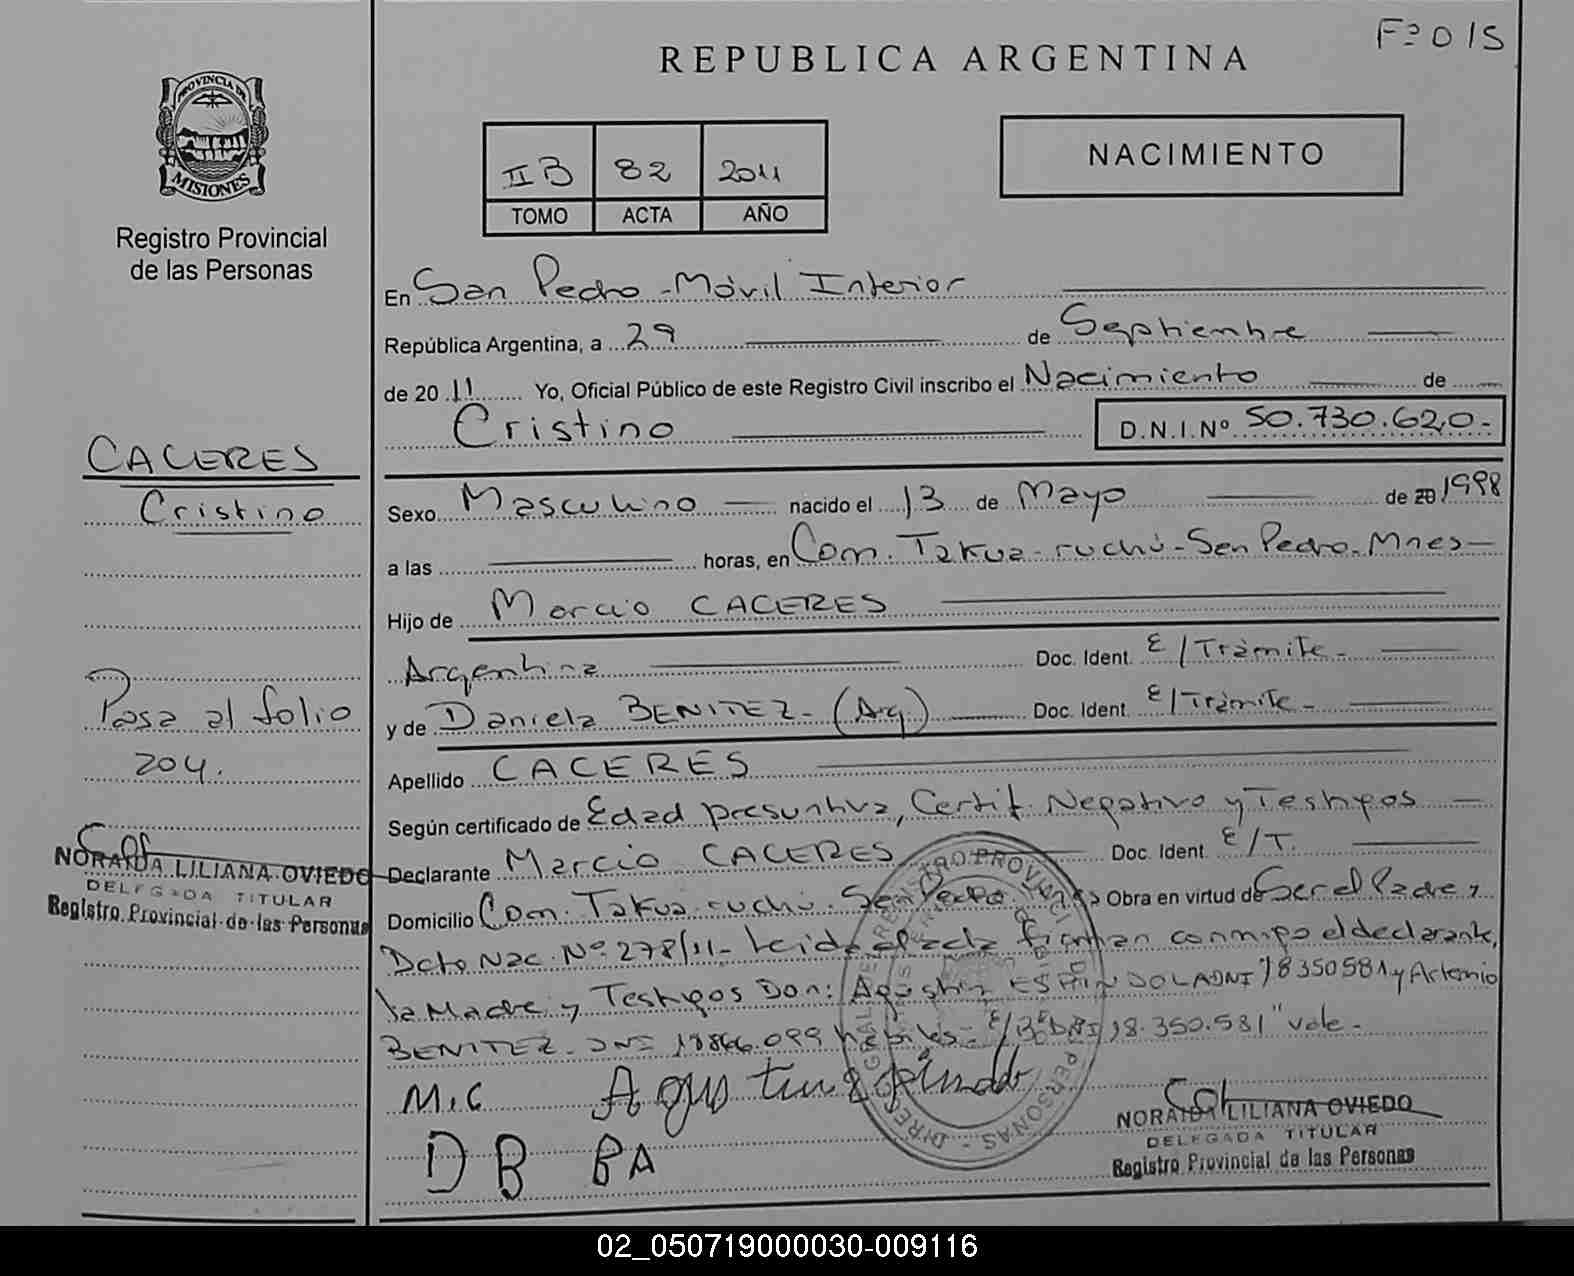 F: 015
REPUBLICA ARGENTINA
PROVINCIA DE
MISIONES
Registro Provincial
de las Personas
II B 82 2011
TOMO ACTA AÑO
NACIMIENTO
En San Pedro - Móvil Interior
República Argentina, a 29 de Septiembre
de 20 11 Yo, Oficial Público de este Registro Civil inscribo el Nacimiento de
Cristino D.N.I.Nº 50.730.620.-
CACERES
Cristino
Sexo Masculino nacido el 13 de Mayo de 20 1998
a las horas, en Com. Takua-ruchú-San Pedro-Mnes-
Hijo de Marcio CACERES
Argentina Doc. Ident. E/Trámite-
y de Daniela BENITEZ- (Arg.) Doc. Ident. E/Trámite-
Pasa al folio
204.
Apellido CACERES
Según certificado de Edad presuntiva, Certif. Negativo y Testigos
Declarante Marcio CACERES Doc. Ident. E/T.
Domicilio Com. Takua-ruchú-San Pedro Obra en virtud de Ser el Padre y
Dcto Nac. Nº 278/11- Leida el acta firman conmigo el declarante,
la Madre y Testigos Don: Agustin ESPINDOLA DNI 18350581 y Artemio
BENITEZ- DNI 18866.099 hábiles- E/ DNI 18.350.581 "vale-
M.C Agustin Espindola
D B BA
NORAIDA LILIANA OVIEDO
DELEGADA TITULAR
Registro Provincial de las Personas
NORAIDA LILIANA OVIEDO
DELEGADA TITULAR
Registro Provincial de las Personas
02_050719000030-009116